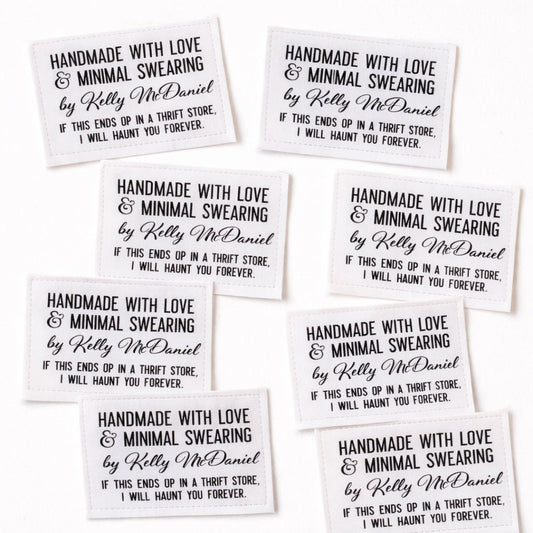 HANDMADE WITH LOVE
& MINIMAL SWEARING
by Kelly McDaniel
IF THIS ENDS UP IN A THRIFT STORE,
I WILL HAUNT YOU FOREVER.
HANDMADE WITH LOVE
& MINIMAL SWEARING
by Kelly McDaniel
IF THIS ENDS UP IN A THRIFT STORE,
I WILL HAUNT YOU FOREVER.
HANDMADE WITH LOVE
& MINIMAL SWEARING
by Kelly McDaniel
IF THIS ENDS UP IN A THRIFT STORE,
I WILL HAUNT YOU FOREVER.
HANDMADE WITH LOVE
& MINIMAL SWEARING
by Kelly McDaniel
IF THIS ENDS UP IN A THRIFT STORE,
I WILL HAUNT YOU FOREVER.
HANDMADE WITH LOVE
& MINIMAL SWEARING
by Kelly McDaniel
IF THIS ENDS UP IN A THRIFT STORE,
I WILL HAUNT YOU FOREVER.
HANDMADE WITH LOVE
& MINIMAL SWEARING
by Kelly McDaniel
IF THIS ENDS UP IN A THRIFT STORE,
I WILL HAUNT YOU FOREVER.
HANDMADE WITH LOVE
& MINIMAL SWEARING
by Kelly McDaniel
IF THIS ENDS UP IN A THRIFT STORE,
I WILL HAUNT YOU FOREVER.
HANDMADE WITH LOVE
& MINIMAL SWEARING
by Kelly McDaniel
IF THIS ENDS UP IN A THRIFT STORE,
I WILL HAUNT YOU FOREVER.